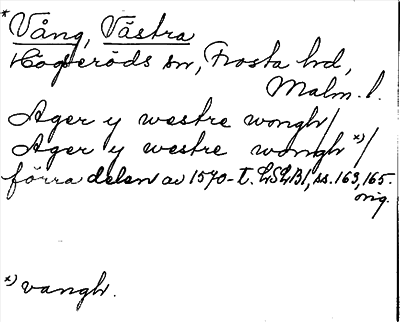 * Vång, Västra
Högseröds sn, Frosta hd,
Malm. l.
Ager y westre wongh/
Ager y westre wongh *)/
förra delen av 1570-t. LSLB1, ss. 163, 165.
orig.
*) vangh.